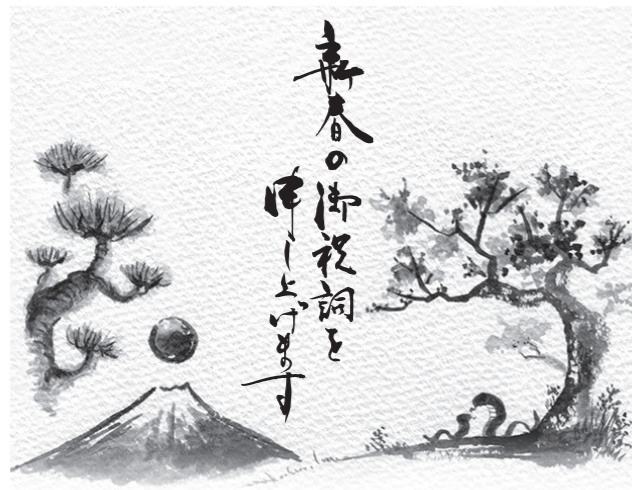 新春の御祝詞を
申し上げます